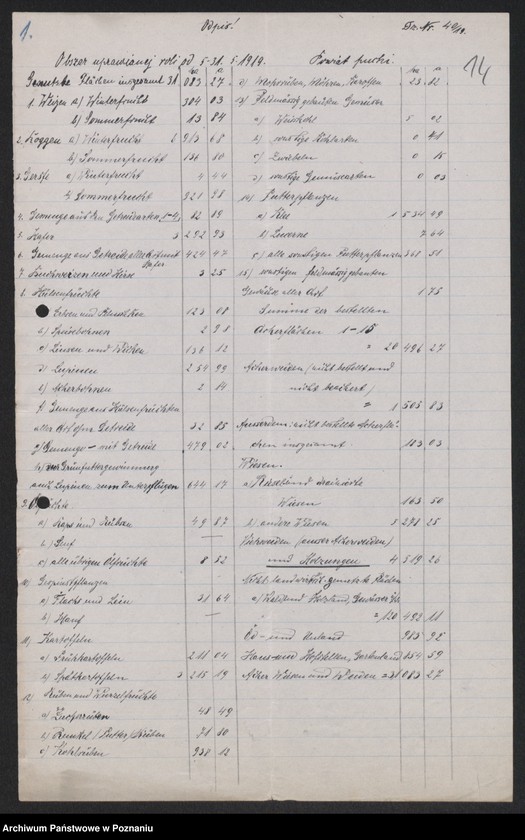 1.
Odpis!
Dz. Nr. 40/19.
14
Obszar uprawianej roli od 5.-31. 5. 1919.
Powiat
ha a
Genutzte Flächen insgesamt 31 083 27
1. Weizen a) Winterfrucht 304 03
b) Sommerfrucht 13 84
2. Roggen a) Winterfrucht 6 913 68
b) Sommerfrucht 136 50
3. Gerste a) Winterfrucht 4 44
b) Sommerfrucht 921 98
4. Gemenge aus den Getreidearten 1-4, 82 19
5. Hafer 3 292 93
6. Gemenge aus Getreide aller Art mit Hafer 424 47
7. Buchweizen und Hirse 3 25
8. Hülsenfrüchte
Erbsen und 123 08
b) Speisebohnen 2 98
c) Linsen und Wicken 136 12
d) Lupinen 254 99
e) Ackerbohnen 2 14
f) Gemenge aus Hülsenfrüchten
aller Art ohne Getreide 32 85
g) Gemenge - mit Getreide 479 02
h) zur Grünfuttergewinnung
und Lupinen zum Unterpflügen 644 17
9.
a) Raps und Rübsen 49 87
b) Senf —
c) alle übrigen Ölfrüchte 8 52
10) Gespinstpflanzen
a) Flachs und Lein 31 64
b) Hanf —
11) Kartoffeln
a) Frühkartoffeln 211 04
b) Spätkartoffeln 3 215 19
12) Rüben und Wurzelfrüchte
a) Zuckerrüben 48 49
b) Runkel/Futter/Rüben 71 50
c) Kohlrüben 938 13
ha a
d) Wasserrüben, Möhren, Karotten 23 12
13) Feldmässig gebautes Gemüse
a) Weisskohl 5 02
b) sonstige Kohlarten 0 41
c) Zwiebeln 0 15
d) sonstige Gemüsearten 0 03
14) Futterpflanzen
a) Klee 1 534 49
b) Luzerne 7 64
c) alle sonstigen Futterpflanzen 361 51
15) sonstigen feldmässig gebauten
Gewächse aller Art 1 75
Summe der bestellten
Ackerflächen 1-15
= 20 496 27
Ackerweiden / nicht bestellt und
nicht beackert /
= 1 505 83
Ausserdem: nicht bestellte Ackerflä-
chen insgesamt 183 03
Wiesen.
a)
Wiesen 163 50
b) andere Wiesen 5 291 25
Viehweiden (ausser Ackerweiden)
und Hutungen 4 519 26
Nicht landwirtsch. genutzte Flächen
a) Wald und
= 120 492 11
Öd- und Unland 953 92
Haus- und Hofstellen, Gartenland 654 59
Äcker Wiesen und Weiden = 31 083 27
Archiwum Państwowe w Poznaniu
szukajwarchiwach.pl